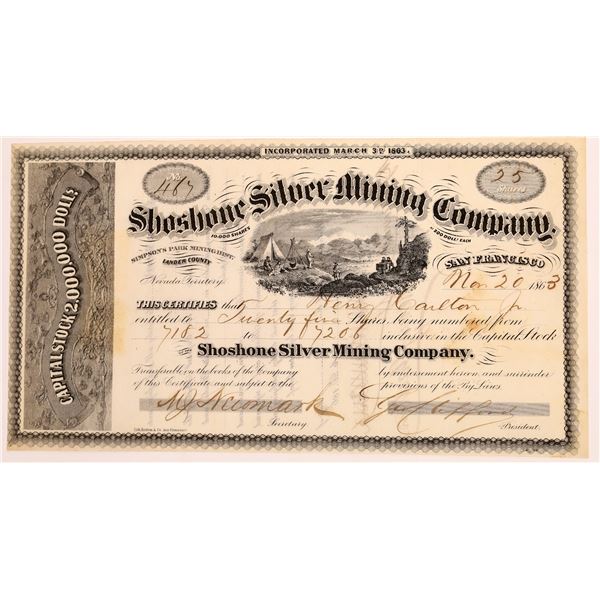 INCORPORATED MARCH 3D 1863.
No 467
25 Shares
Shoshone Silver Mining Company.
10,000 SHARES
200 DOLLS EACH
SIMPSON'S PARK MINING DIST.
LANDER COUNTY
Nevada Territory.
SAN FRANCISCO
Nov 20 1863
THIS CERTIFIES that Henry Carlton Jr
entitled to Twenty five Shares being numbered from
7182 to 7206 inclusive in the Capital Stock
OF THE Shoshone Silver Mining Company.
Transferable on the books of the Company by endorsement hereon and surrender
of this Certificate and subject to the provisions of the By Laws
M J Newmark
Secretary.
President.
CAPITAL STOCK 2,000,000 DOLLS